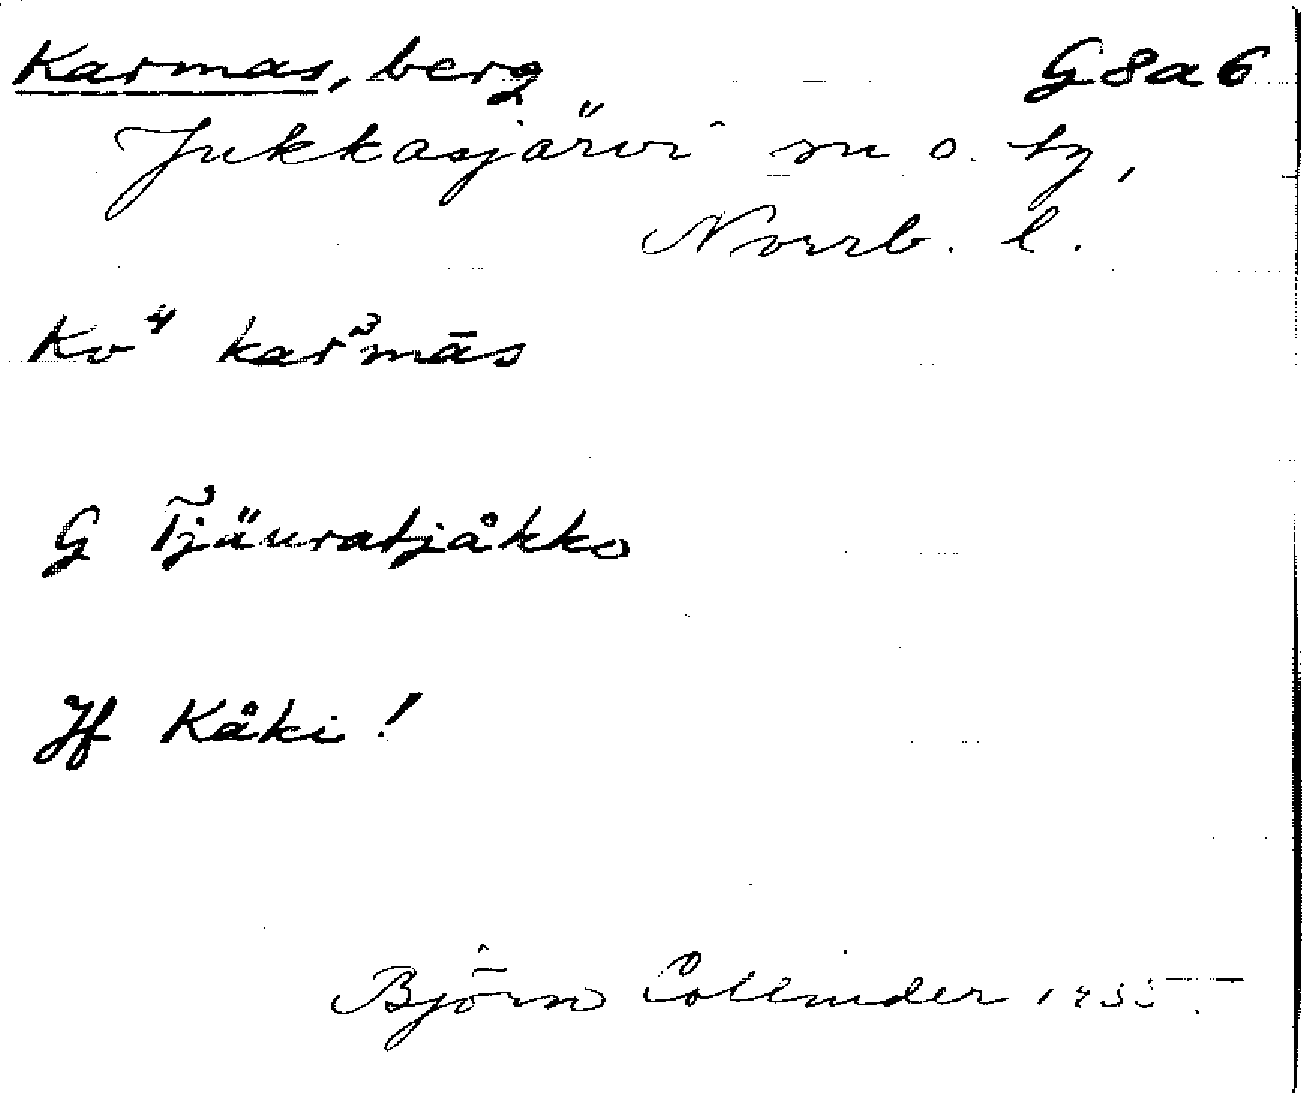 Karmas, berg G8a6
Jukkasjärvi sn o. tg,
Norrb. l.
Kv⁴ karˀmās
G Tjäuratjåkko
Jf Kåki!
Björn Collinder 1935.